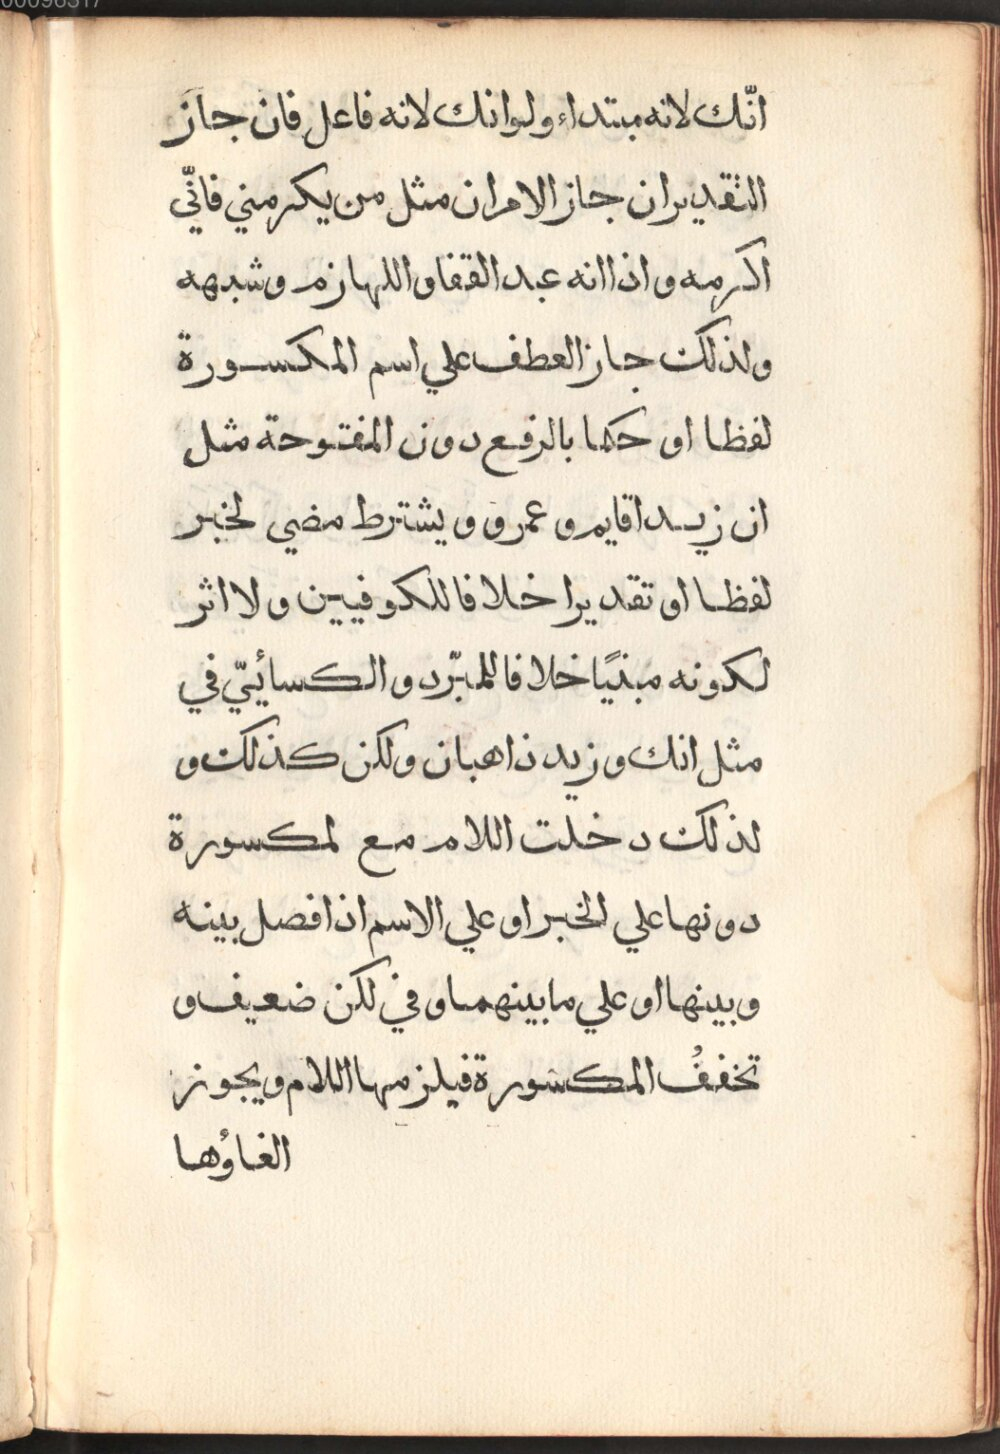 00096317
انّك لانه مبتداء ولوانك لانه فاعل فان جاز
التقديران جاز الامران مثل من يكرمني فانّي
اكرمه و اذا انه عبد القفا و اللهازم وشبهه
ولذلك جاز العطف علي اسم المكسورة
لفظا او حكما بالرفع دون المفتوحة مثل
ان زيدا قايم و عمرو و يشترط مضي لخبر
لفظا او تقديرا خلافا للكوفيين و لا اثر
لكونه مبنيًا خلافا للمبّرد و الكسائيّ في
مثل انك و زيد ذاهبان ولكن كذلك و
لذلك دخلت اللام مع لمكسورة
دونها علي الخبر او علي الاسم اذا فصل بينه
و بينها او علي ما بينهما و في لكن ضعيف و
تخففُ المكسورة فيلزمها اللام ويجوز
الغاؤها